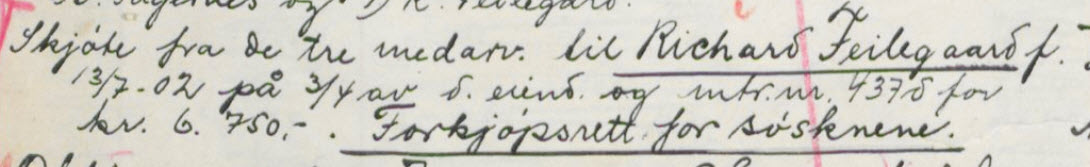 Skjöte fra de tre medarv. til Richard Feilegaard f.
13/7-02 på 3/4 av d. eiend. og mtr.nr. 437d for
kr. 6.750,-. Forkjöpsrett for sösknene.